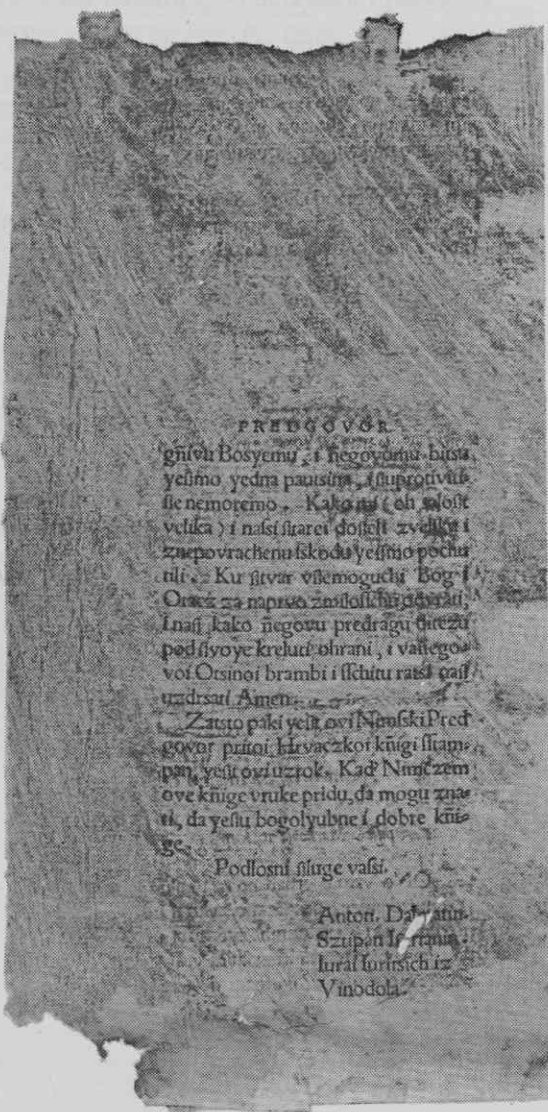 PREDGOVOR
gñivu Bosyemu, i ñegovomu bitsu
yesimo yedna pautsina, i suprotiviti
sse nemoremo. Kako mi (oh
velika) i nassi starei dosseli zveliku i
znepovrachenu skodu yesimo pochu
tili. Ku stvar vssemoguchi Bog i
Otacz za naprvo zmilosschu odvrati,
i nass kako ñegovu predragu
pod svoye kreluti ohrani, i va ñego-
voi Otsinoi brambi i sschitu ratsi nass
uzdrsati Amen.
Zatsto paki yest ovi Nimski Pred
govor pritoi Hrvaczkoi kñigi sstam-
pan, yesu ovi uzrok. Kad Nimczem
ove kñige vruke pridu, da mogu zna-
ti, da yesu bogolyubne i dobre kñi-
ge.
Podlosni ssluge vassi.
Anton Dalmatin
Szupan Isstrianin
Iurai Iurissich iz
Vinodola.